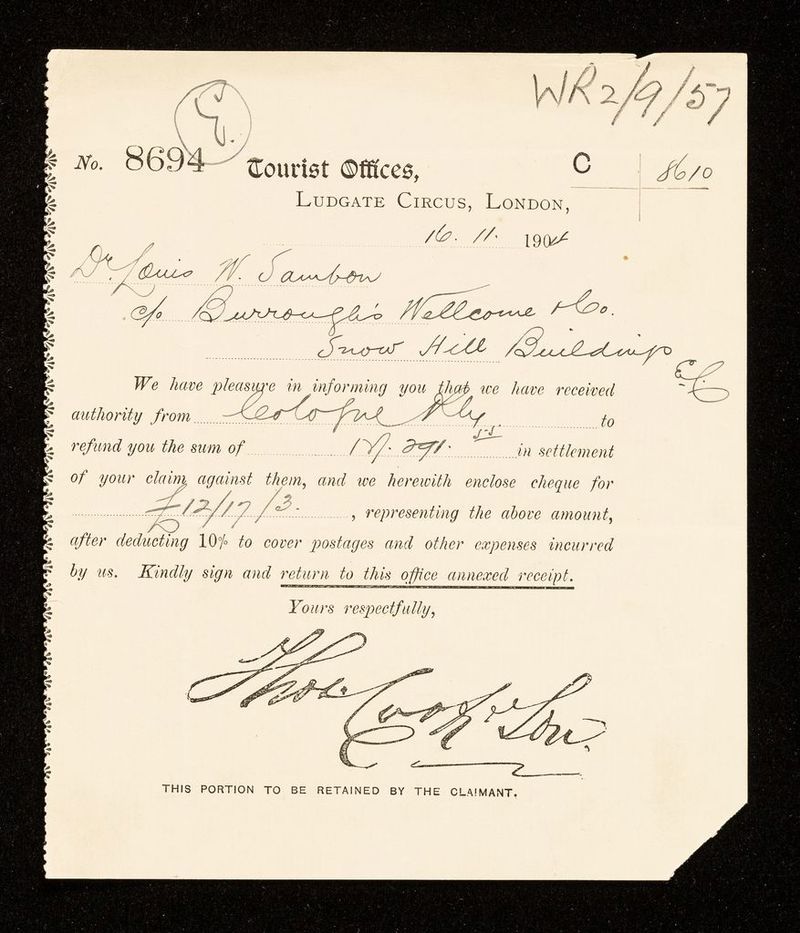 WR2/9/57
E.
No. 8694 Tourist Offices, C 8610
LUDGATE CIRCUS, LONDON,
16. 11. 1904
Dr. Louis W. Sambon
c/o Burrough's Wellcome & Co.
Snow Hill Buildings
E.C.
We have pleasure in informing you that we have received
authority from Cologne Rly. to
refund you the sum of 291. 55 in settlement
of your claim against them, and we herewith enclose cheque for
£12/17/3. , representing the above amount,
after deducting 10% to cover postages and other expenses incurred
by us. Kindly sign and return to this office annexed receipt.
Yours respectfully,
Thos. Cook & Son.
THIS PORTION TO BE RETAINED BY THE CLAIMANT.